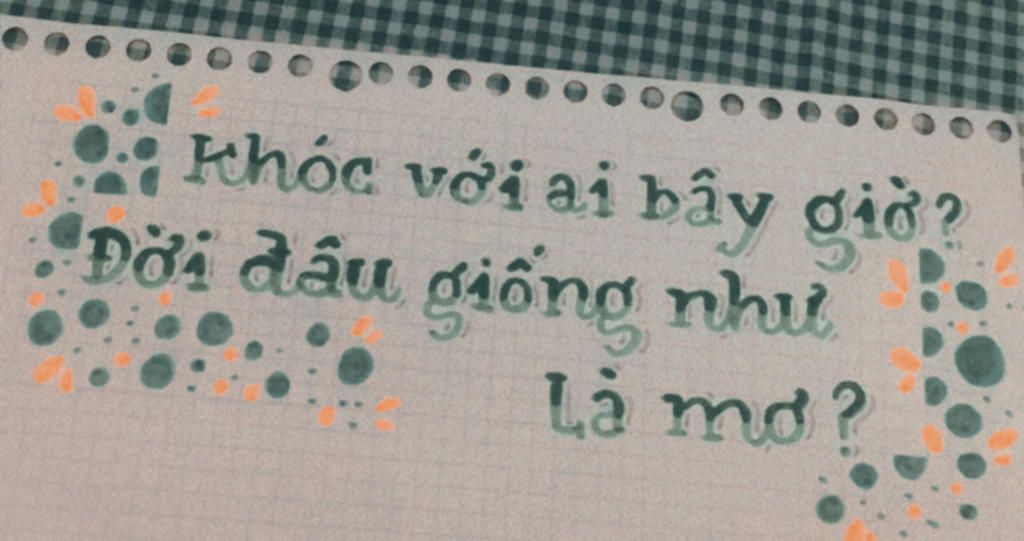 Khóc với ai bây giờ?
Đời đâu giống như
Là mơ?